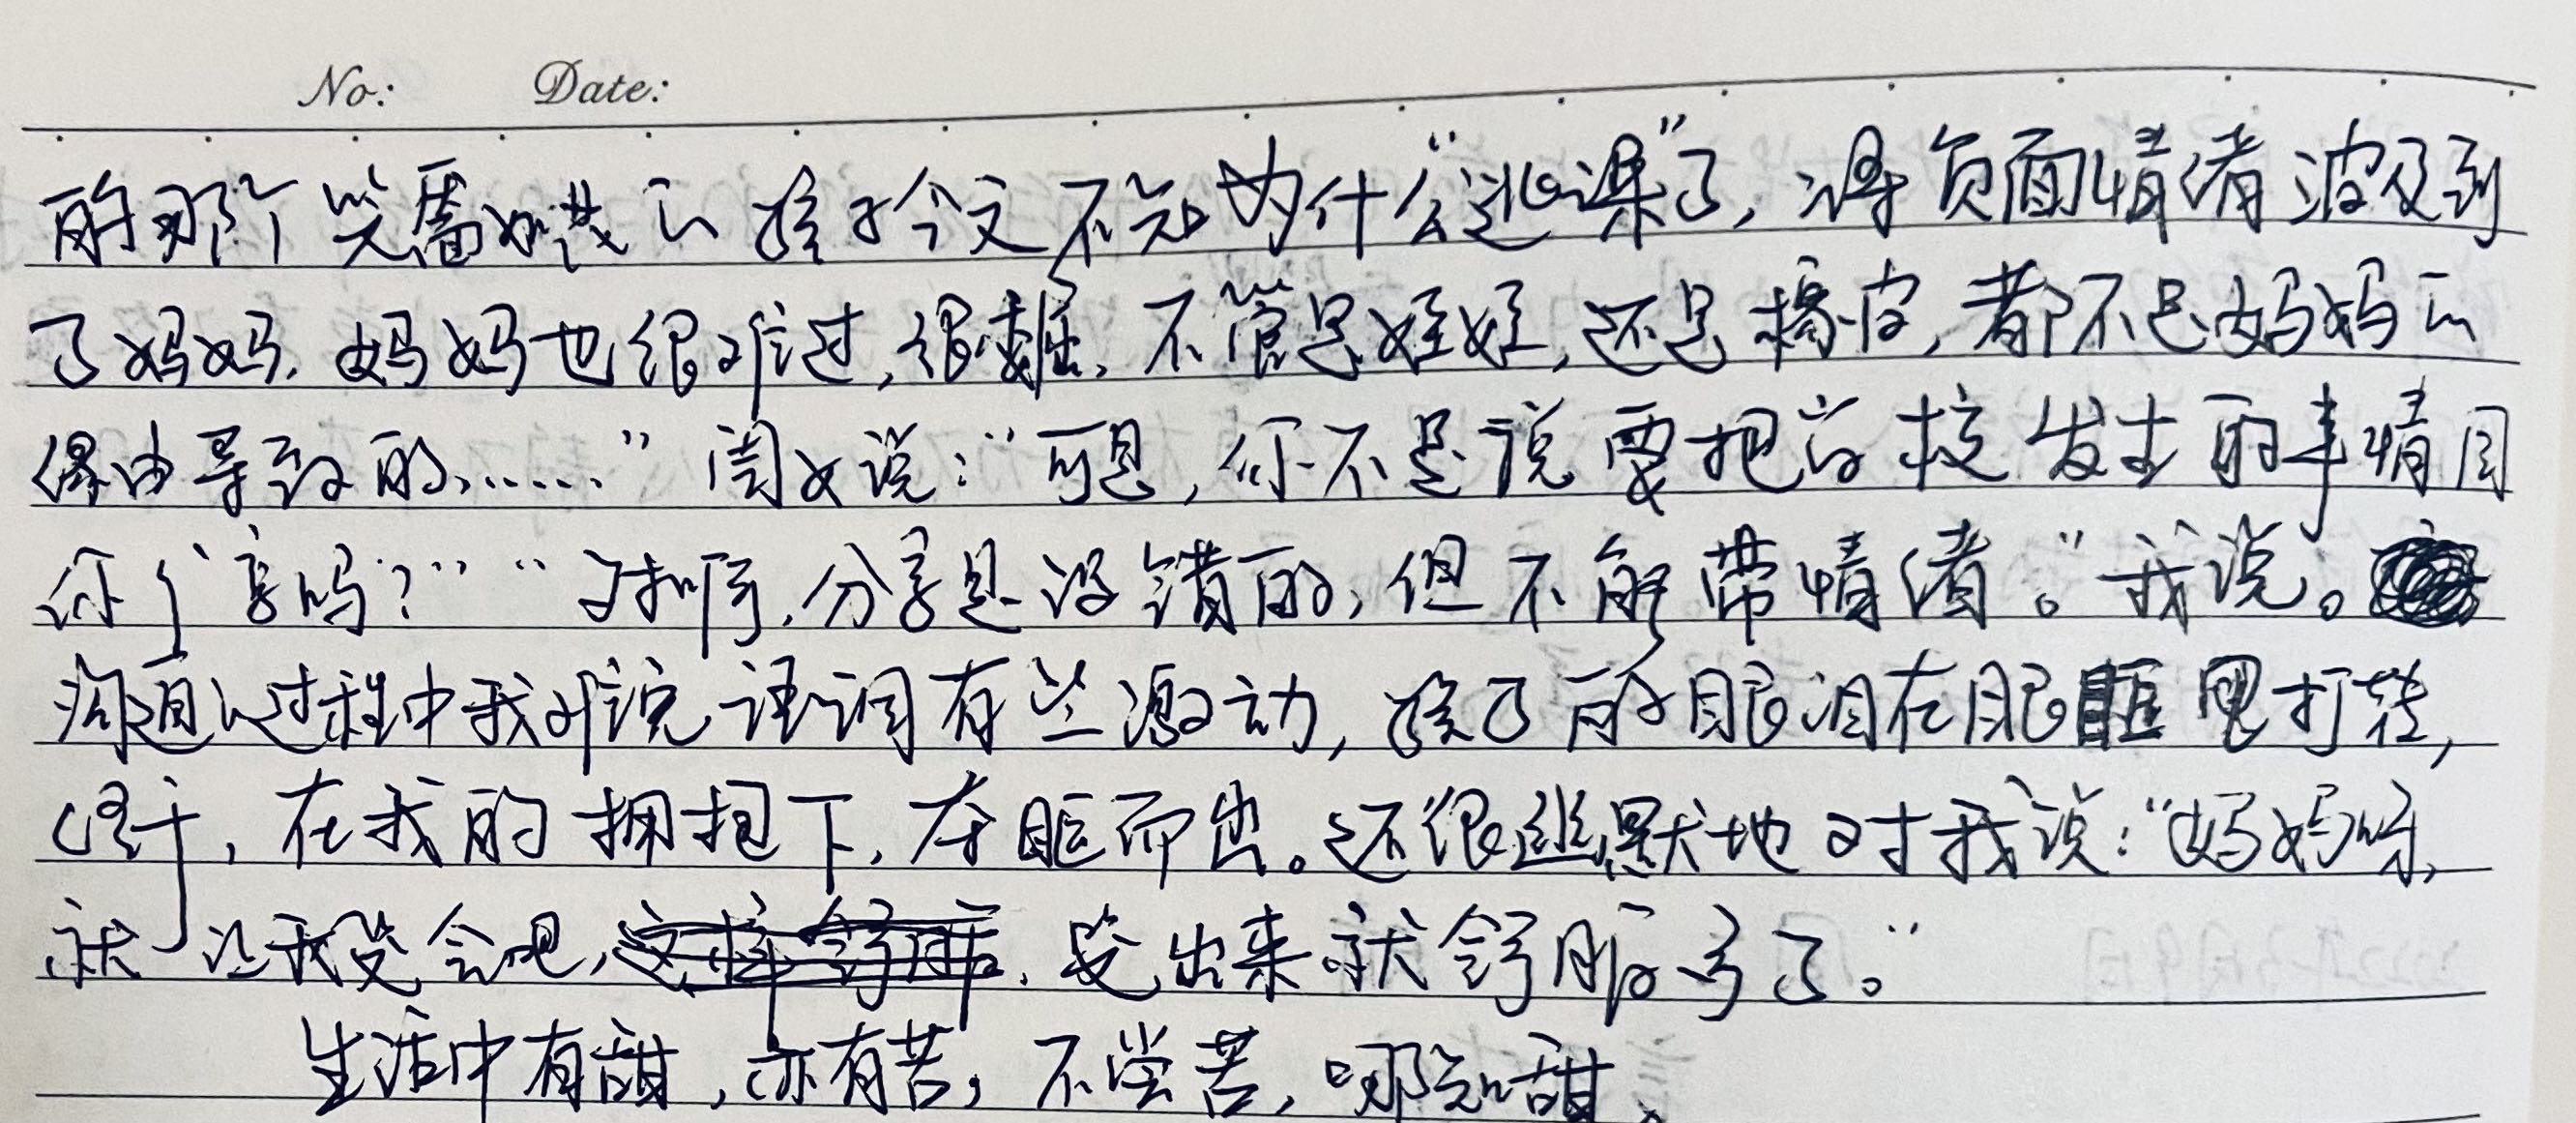 No: Date:
的那个笑靥如花的孩子今天不知为什么"逃课"了,将负面情绪波及到
了妈妈.妈妈也很难过,很难.不管是娃娃,还是橡皮,都不是妈妈的
缘由导致的......"闺女说:"可是,你不是说要把学校发生的事情同
你分享吗?""对啊,分享是没错的,但不能带情绪。"我说。
沟通的过程中我的说话语调有些激动,孩子的眼泪在眼眶里打转,
终于,在我的拥抱下.夺眶而出。还很幽默地对我说:"妈妈呀,
就让我哭会吧,哭出来就舒服多了。"
生活中有甜,亦有苦,不尝苦,哪知甜、